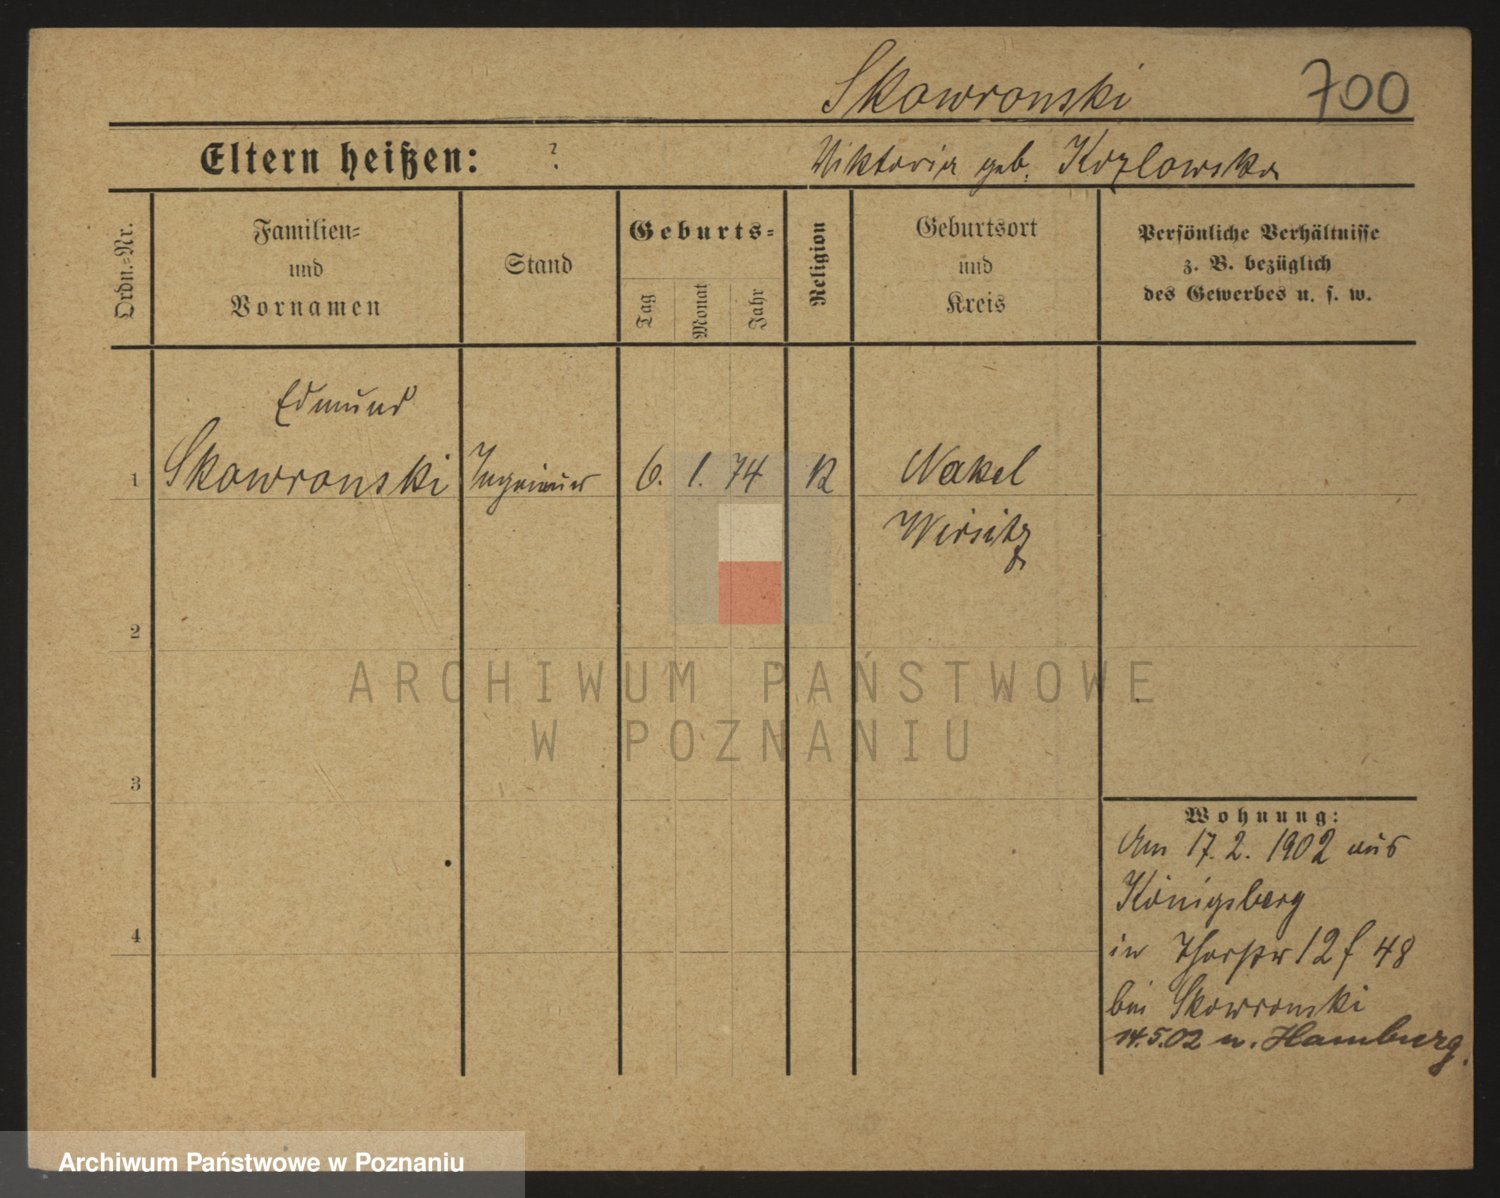 Skowronski 700
Eltern heißen: ? Viktoria geb. Kozlowska
Ordn.=Nr.
Familien=
und
Vornamen
Stand
Geburts=
Tag
Monat
Jahr
Religion
Geburtsort
und
Kreis
Persönliche Verhältnisse
z. B. bezüglich
des Gewerbes u. s. w.
Edmund
1 Skowronski Ingenieur 6. 1. 74 Nakel
Wirsitz
2
3
4
Wohnung:
Am 17. 2. 1902 aus
Königsberg
in 12 48
bei Skowronski
14.5.02 n. Hamburg.
ARCHIWUM PAŃSTWOWE
W POZNANIU
Archiwum Państwowe w Poznaniu